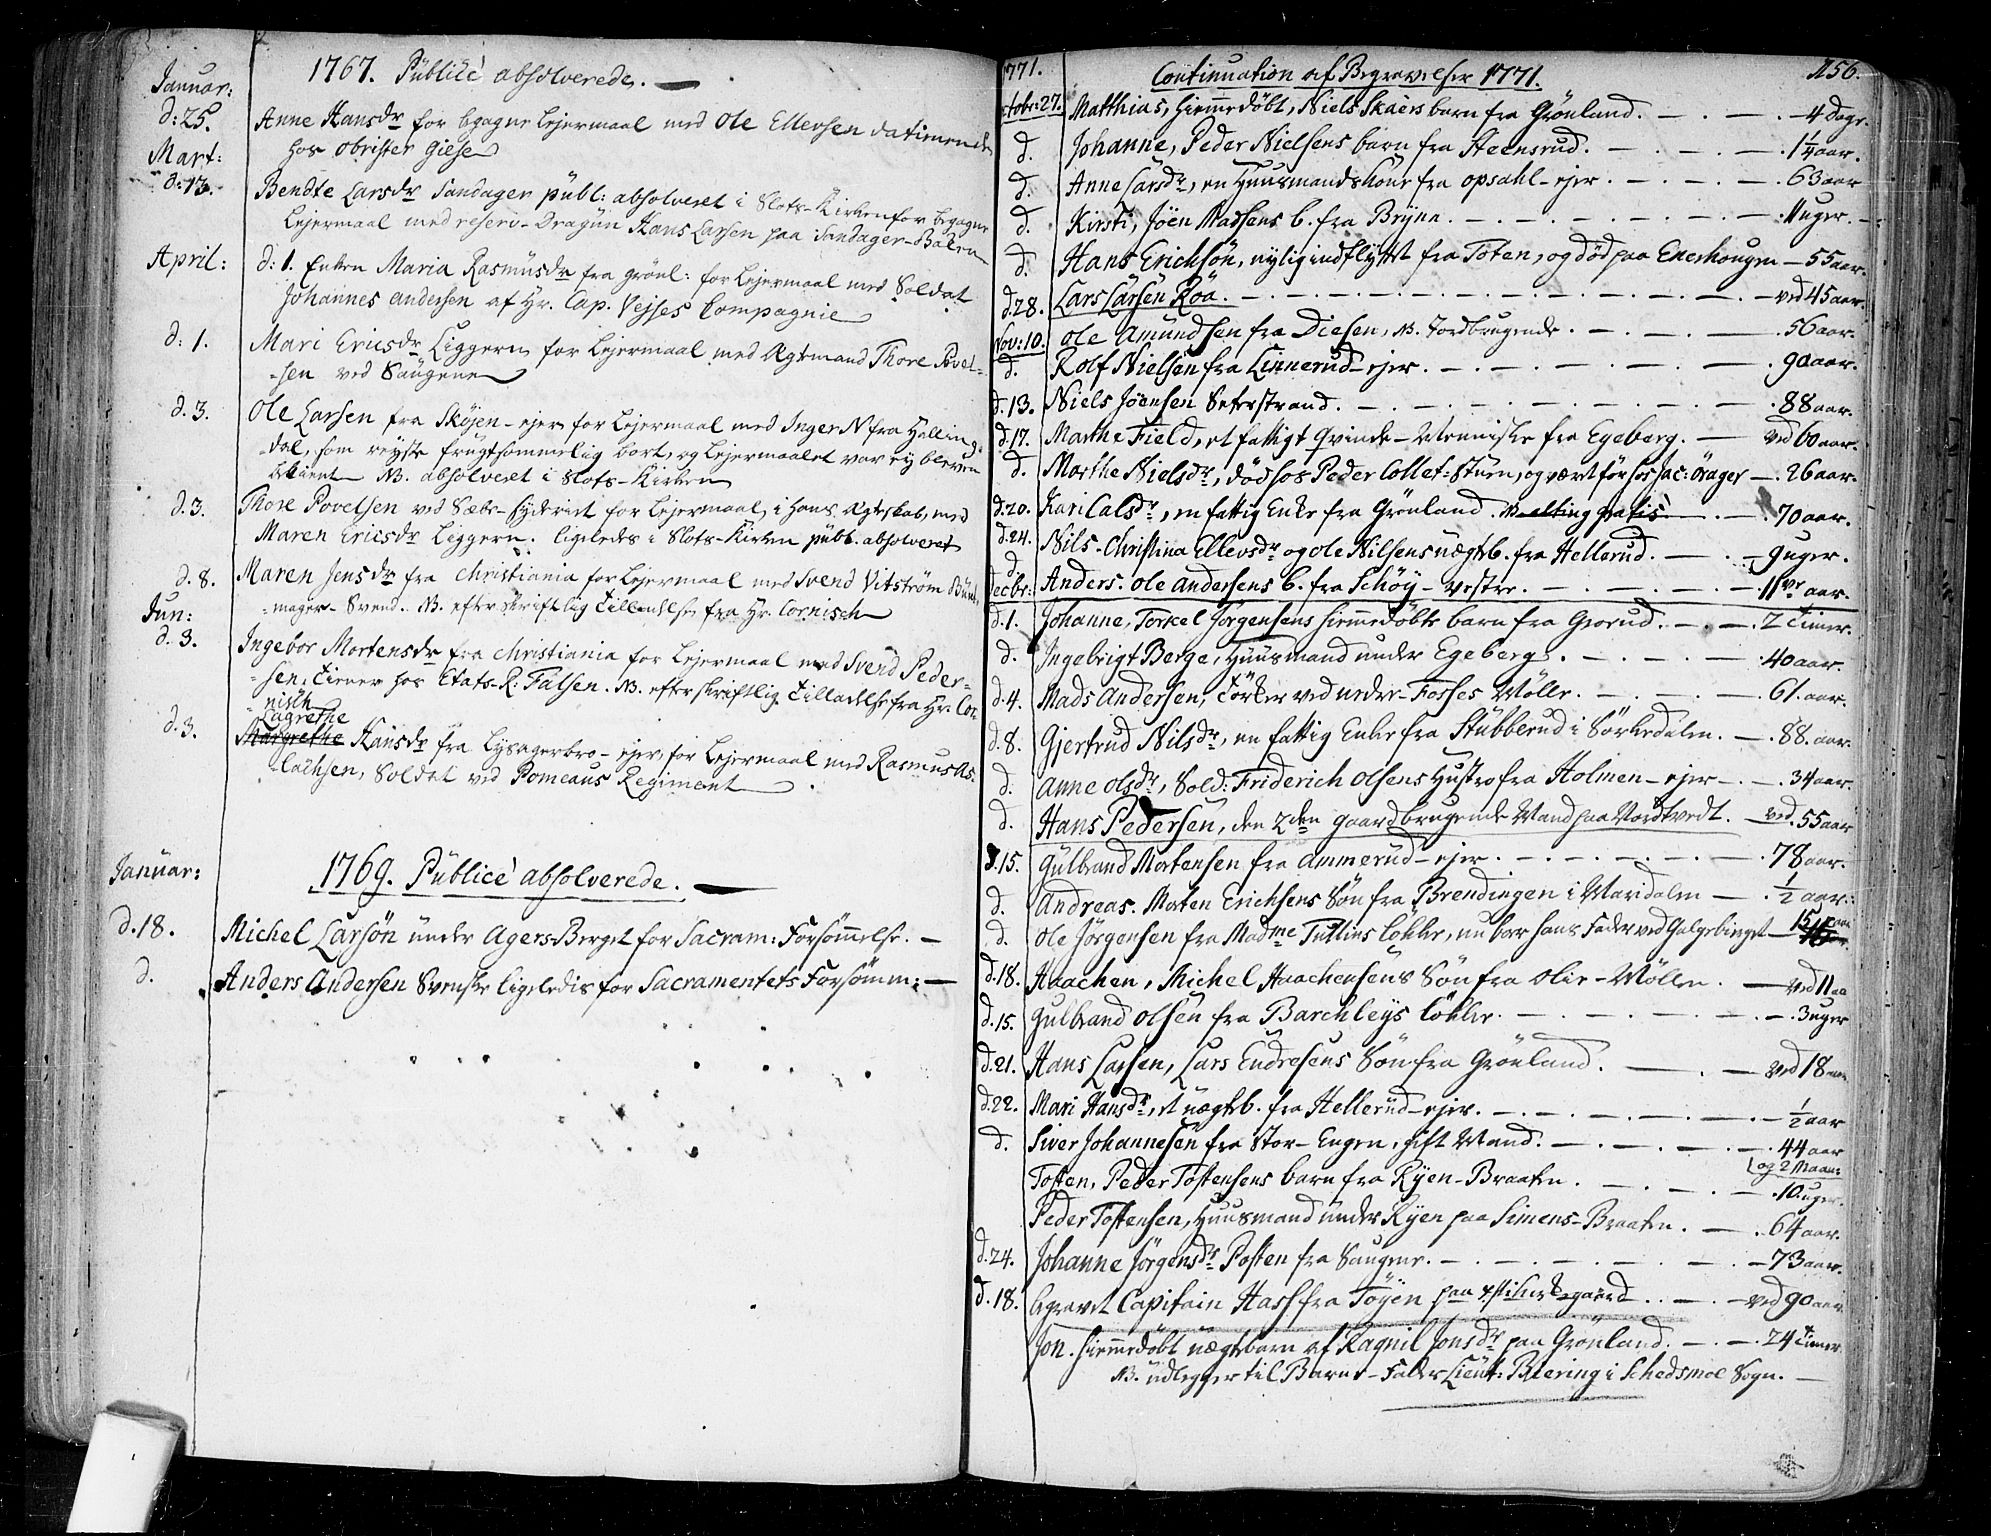 1767. Publicè absolverede.
Januar:
d: 25. Anne Hansdr for begagne Lejermaal med Ole Ellevsen da tienende
hos Obrister Giese
Mart:
d: 13. Bendte Larsdr Sandager publ: absolveret i Slots-Kirken for begagne
Lejermaal med reserv-Dragun Hans Larsen paa Sandager-Bakken
April: d: 1. Enken Maria Rasmusdr fra Grönl: for Lejermaal med Soldat
Johannes Andersen af Hr. Cap. Vejses Compagnie
d: 1. Mari Ericsdr Liggern for Lejermaal med Ægtemand Thore Povel-
-sen ved Saugene
d. 3. Ole Larsen fra Skøjen-ejer for Lejermaal med Inger N fra Halling-
dal, som reyste frugtsommelig bort, og Lejermaalet var ey bleven
bekient NB. absolveret i Slots-Kirken
d. 3. Thore Povelsen ved Sæbe-Syderiet for Lejermaal, i hans Ægteskab, med
Maren Ericsdr Liggern. ligeledes i Slots-Kirken publ. absolveret
d. 8. Maren Jensdr fra Christiania for Lejermaal med Svend Vitström
-mager-Svend. NB. efter skriftlig Tilladelse fra Hr. Cornisch
Jun:
d. 3. Ingebor Mortensdr fra Christiania for Lejermaal med Svend Peder-
-sen, tiener hos Etats-R: Falsen. NB. efter skriftlig Tilladelse fra Hr. Cor-
-nisch
Lagrethe
d. 3. Margrethe Hansdr fra Lysagerbro-ejer, for Lejermaal med Rasmus As-
-lachsen, Soldat ved Pomeaus Regiment
1769. Publicè absolverede.
Januar:
d. 18. Michel Larsön under Agers-Berget for Sacram: Forsömmelse. —
d. Anders Andersen Svenske ligeledis for Sacramentets Forsömm: —
1771. Continuation af Begravelser 1771. 156.
Octobr: 27. Matthias, hiemmedöbt, Niels Skaërs barn fra Grönland. — 4 dage.
d. Johanne, Peder Nielsens barn fra Steensrud. — 1¼ aar.
d. Anne Larsdr, en Huusmandskone fra Opsahl-ejer. — 63 aar
d. Kirsti, Jöen Madsens b. fra Bryne. — 11 uger.
d. Hans Erichsön, nylig indflyttet fra Toten, og död paa Enerhougen — 55 aar.
d. 28. Lars Larsen Röa. — ved 45 aar.
Nov: 10. Ole Amundsen fra Diesen, NB. Jordbrugende. — 56 aar.
d. Rolf Nielsen fra Linnerud-ejer. — 90 aar.
d. 13. Niels Jöensen Seterstrand. — 88 aar.
d. 17. Marthe Field, et fattigt Qvinde-Menniske fra Egeberg. — ved 60 aar.
d. Marthe Nielsdr, död hos Peder Collet: Stuen, og vært för hos Jac: Örager — 26 aar.
d. 20. Kari Calsdr, en fattig Enke fra Grönland. NB alting gratis — 70 aar.
d. 24. Nils. Christina Ellevsdr og Ole Nilsens uægteb. fra Hellerud. — 9 uger.
d. Anders. Ole Andersens b. fra Schöy-Vestre. — 11 aar.
Decbr:
d. 1. Johanne, Torkel Jörgensens hiemmedöbte barn fra Grorud. — 2 Timer.
d. Ingebrigt Berge, Huusmand under Egeberg. — 40 aar.
d. 4. Mads Andersen, Törker ved nedre-Fosses Mölle. — 61. aar.
d. 8. Gjertrud Nilsdr, en fattig Enke fra Stubberud i Sörkedalen. — 88. aar.
d. Anne Olsdr, Sold: Friderich Olsens Hustro fra Holmen-ejer — 34 aar.
d. Hans Pedersen, den 2den gaardbrugende Mand paa Nordtvedt. — ved 55 aar
d. 15. Gulbrand Mortensen fra Ammerud-ejer. — 78 aar.
d. Andreas. Morten Erichsens Sön fra Brendingen i Mardalen — ½ aar.
d. Ole Jörgensen fra Madme Tullins Lökke, nu boer hans Fader ved Galgebierget — 15 aar
d. 18. Haachen, Michel Haachensens Sön fra Olie-Möllen. — ved 11 aar
d. 15. Gulbrand Olsen fra Barchleys Lökke. — 3 uger
d. 21. Hans Larsen, Lars Endresens Sön fra Grönland. — ved 18 aar
d. 22. Mari Hansdr, et uægteb. fra Hellerud-ejer. — ½ aar
d. Siver Johannesen fra Stor-Engen, gift Mand. — 44 aar
og 2 Maan:
Tosten, Peder Tostensens barn fra Ryen-Braaten. — 10. uger.
Peder Tostensen, Huusmand under Ryen paa Simens-Braaten. — 64 aar.
d. 24. Johanne Jörgensdr Posten fra Saugene. — 73 aar.
d. 18. begravet Capitain Hass fra Töyen paa Kirkegaard. — ved 90 aar
Jon. hiemmedöbt uægte barn af Ragnil Jonsdr paa Grönland. — 24 Timer
NB. udlegger til Barne-Fader Lieut: Biering i Schedsmoe Sogn. —